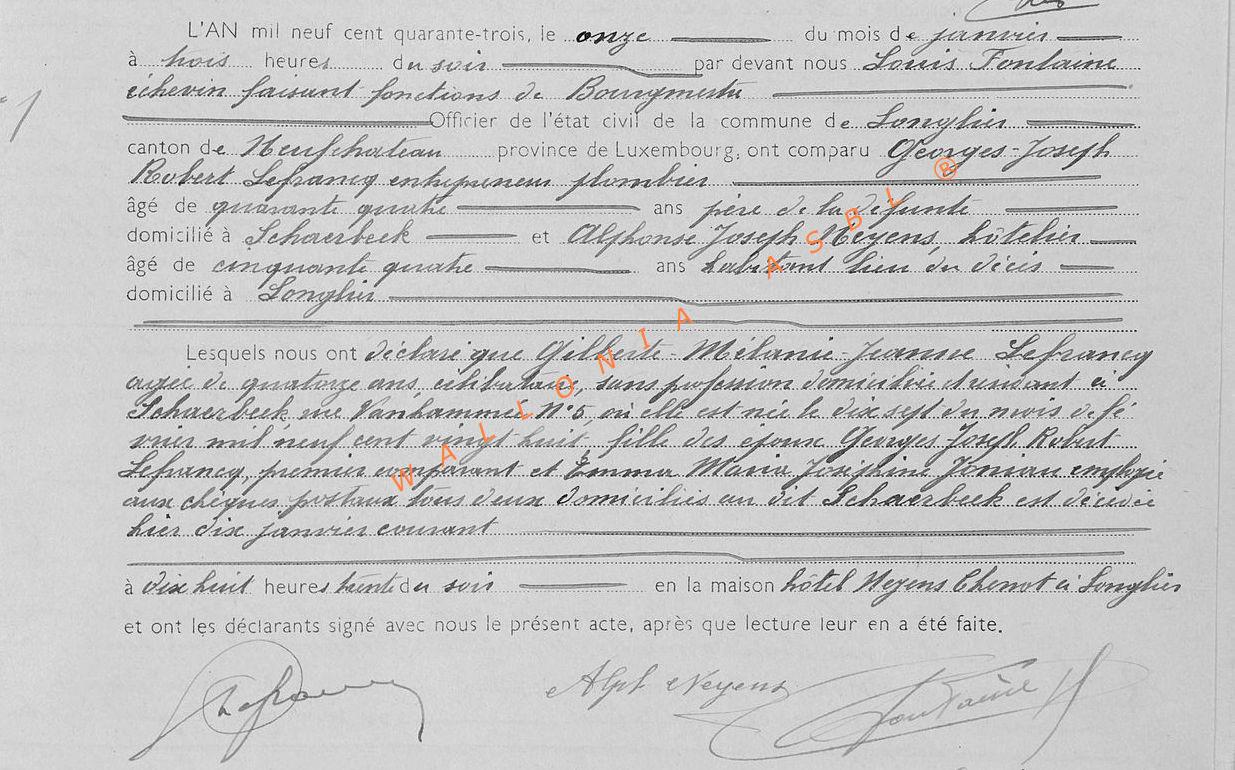 L'AN mil neuf cent quarante-trois, le onze du mois de janvier
à trois heures du soir par devant nous Louis Fontaine
échevin faisant fonctions de Bourgmestre
Officier de l'état civil de la commune de Longlier
canton de Neufchateau province de Luxembourg, ont comparu Georges-Joseph
Robert Lefrancq entrepreneur plombier
âgé de quarante quatre ans père de la défunte
domicilié à Schaerbeek et Alphonse Joseph Neyens, hôtelier
âgé de cinquante quatre ans habitant lieu du décès
domicilié à Longlier
Lesquels nous ont déclaré que Gilberte-Mélanie-Jeanne Lefrancq
agée de quatorze ans, célibataire, sans profession domiciliée et résidant à
Schaerbeek rue Vanhammée N°5, où elle est née le dix sept du mois de fé
vrier mil neuf cent vingt huit, fille des époux Georges Joseph Robert
Lefrancq, premier comparant et Emma Maria Joséphine Joniau employée
aux chèques postaux tous deux domiciliés au dit Schaerbeek est décédée
hier dix janvier courant
à dix huit heures trente du soir en la maison hôtel Neyens Chenot à Longlier
et ont les déclarants signé avec nous le présent acte, après que lecture leur en a été faite.
Lefrancq Alph Neyens Fontaine
WALLONIA ASBL ®